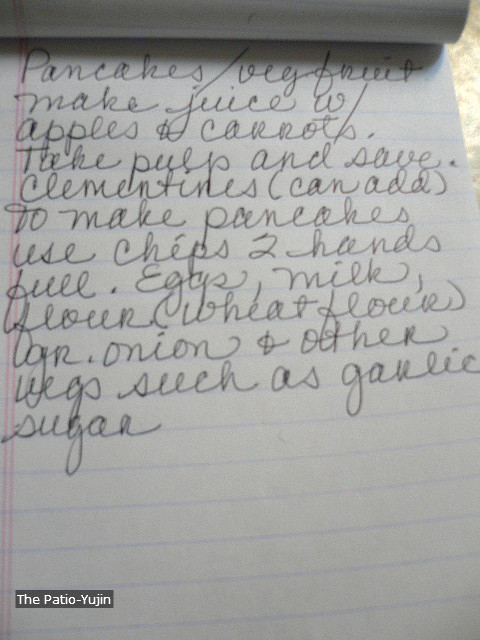 Pancakes/veg fruit
make juice w/
apples & carrots.
Take pulp and save.
Clementines (can add)
To make pancakes
use chips 2 hands
full. Eggs, milk,
flour (wheat flour)
1 gr. onion & other
vegs such as garlic
sugar
The Patio-Yujin